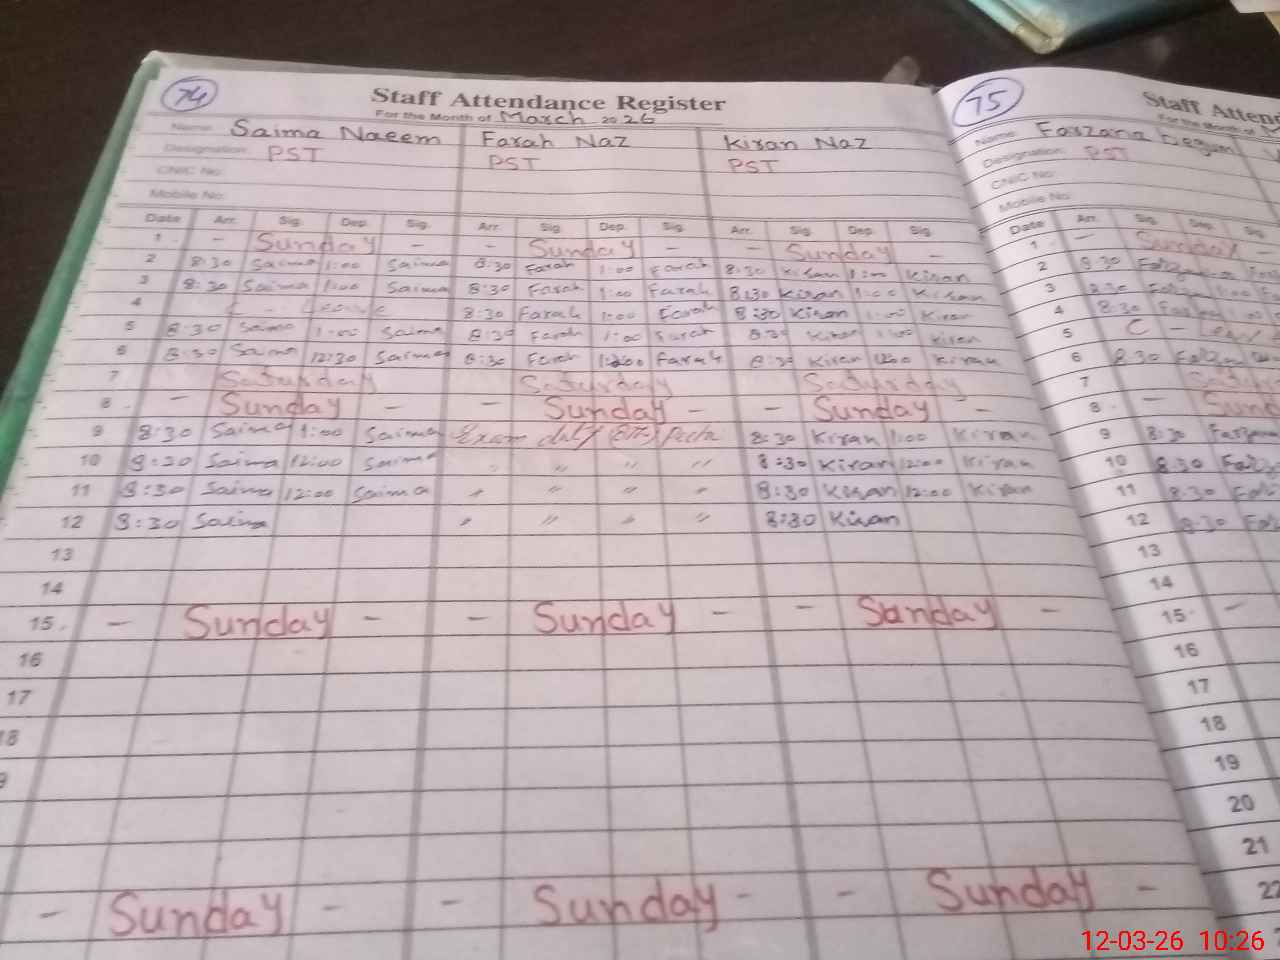 74
Staff Attendance Register
For the Month of March 2026
Name: Saima Naeem Farah Naz Kiran Naz
Designation: PST PST PST
CNIC No:
Mobile No:
Date Arr. Sig. Dep. Sig. Arr. Sig. Dep. Sig. Arr. Sig. Dep. Sig.
1 - Sunday - - Sunday - - Sunday -
2 8:30 Saima 1:00 Saima 8:30 Farah 1:00 Farah 8:30 Kiran 1:00 Kiran
3 8:30 Saima 1:00 Saima 8:30 Farah 1:00 Farah 8:30 Kiran 1:00 Kiran
4 C - Leave 8:30 Farah 1:00 Farah 8:30 Kiran 1:00 Kiran
5 8:30 Saima 1:00 Saima 8:30 Farah 1:00 Farah 8:30 Kiran 1:00 Kiran
6 8:30 Saima 12:30 Saima 8:30 Farah Farah 8:30 Kiran 12:00 Kiran
7 Saturday Saturday Saturday
8 - Sunday - - Sunday - - Sunday -
9 8:30 Saima 1:00 Saima Exam duty 8:30 Kiran 1:00 Kiran
10 8:30 Saima 12:00 Saima " " " " 8:30 Kiran 12:00 Kiran
11 8:30 Saima 12:00 Saima " " " " 8:30 Kiran 12:00 Kiran
12 8:30 Saima " " " " 8:30 Kiran
13
14
15 - Sunday - - Sunday - - Sunday -
16
17
18
- Sunday - - Sunday - - Sunday -
75
Staff Atten
For the Month of
Name: Farzana Begum
Designation: PST
CNIC No:
Mobile No:
Date Arr. Sig. Dep.
1 - Sunday -
2 8:30
3 8:30
4 8:30
5 C -
6 8:30
7
8 -
9 8:30
10 8:30
11 8:30
12 8:30
13
14
15 -
16
17
18
19
20
21
22
12-03-26 10:26